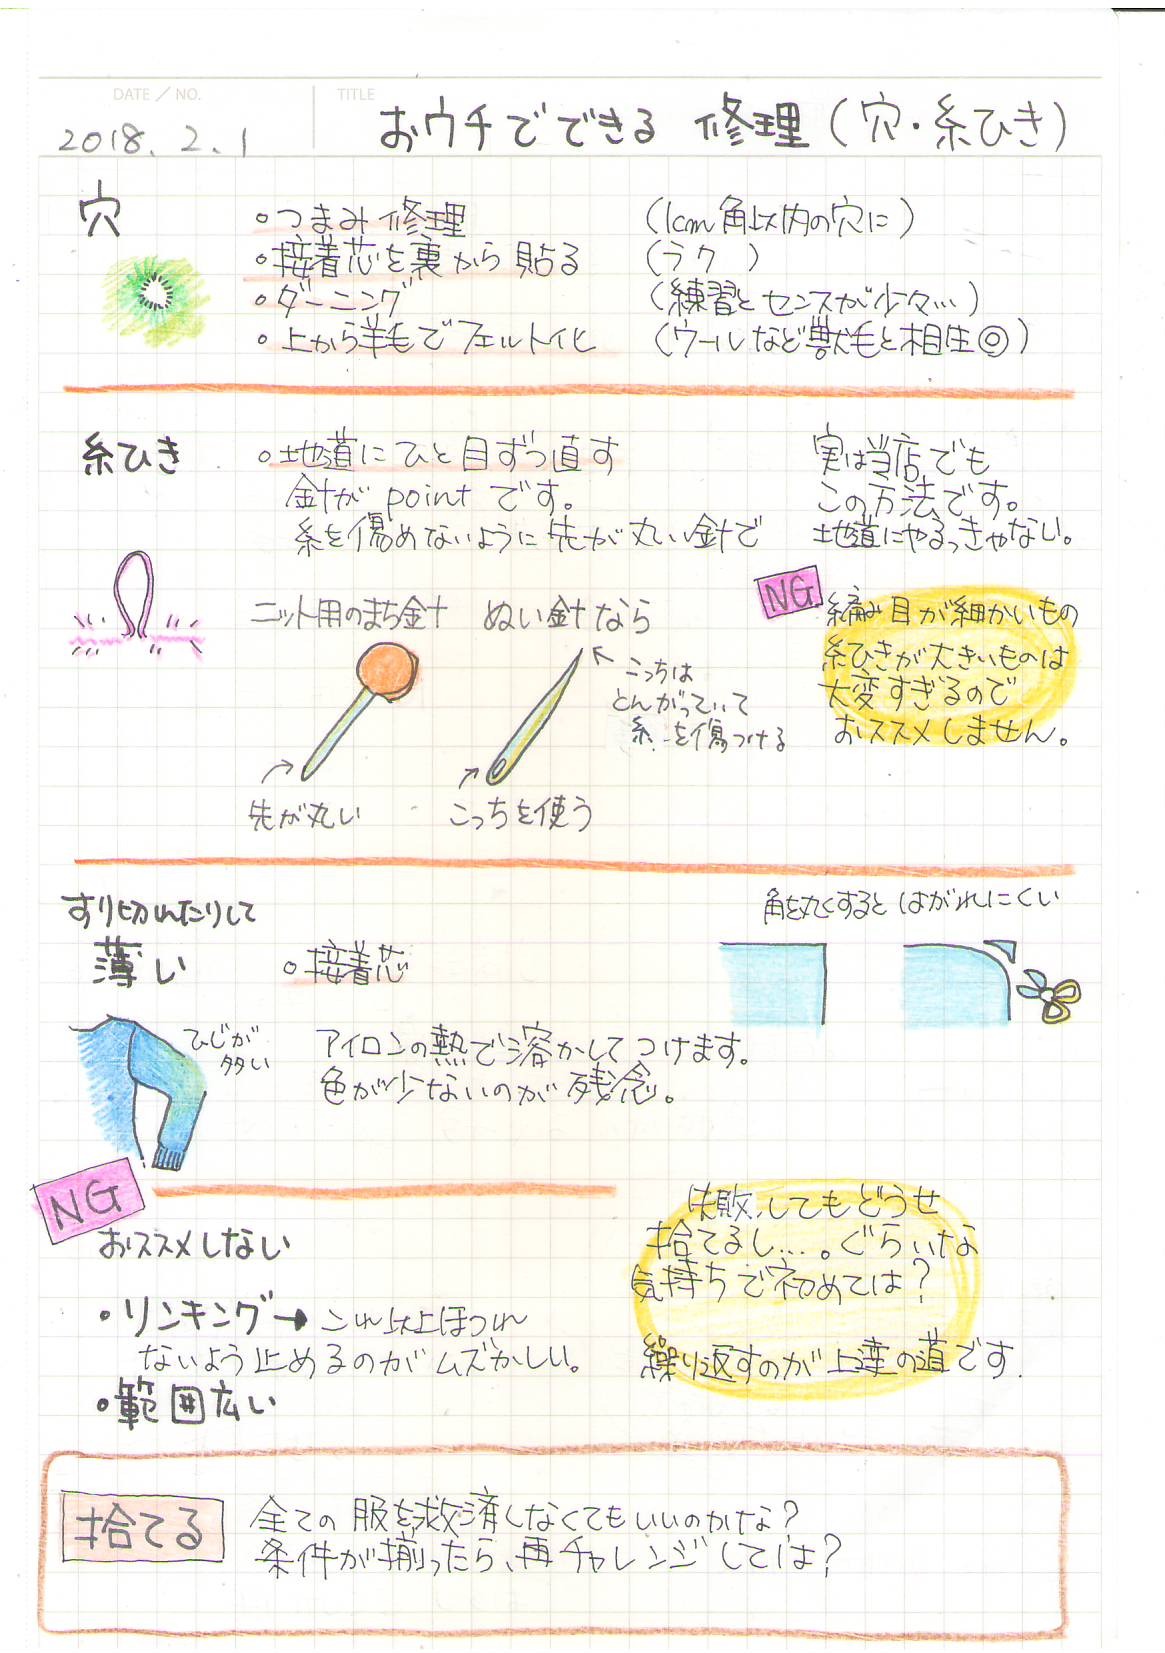 DATE / NO.
TITLE
2018.2.1
おウチでできる 修理(穴・糸ひき)
穴
・つまみ修理 (1cm角以内の穴に)
・接着芯を裏から貼る (ラク )
・ダーニング (練習とセンスが少々…)
・上から羊毛でフェルト化 (ウールなど獣毛と相性◎)
糸ひき
・地道にひと目ずつ直す
針がpointです。
糸を傷めないように先が丸い針で
実は当店でも
この方法です。
地道にやるっきゃない。
ニット用のまち針
先が丸い
ぬい針なら
こっちは
とんがっていて
糸を傷つける
こっちを使う
NG
編み目が細かいもの
糸ひきが大きいものは
大変すぎるので
おススメしません。
すり切れたりして
薄い
ひじが
多い
・接着芯
アイロンの熱で溶かしてつけます。
色が少ないのが残念。
角を丸くするとはがれにくい
NG
おススメしない
・リンキング→これ以上ほつれ
ないよう止めるのがムズかしい。
・範囲広い
失敗してもどうせ
捨てるし…。ぐらいな
気持ちで初めては?
繰り返すのが上達の道です.
捨てる
全ての服を救済しなくてもいいのかな?
条件が揃ったら、再チャレンジしては?